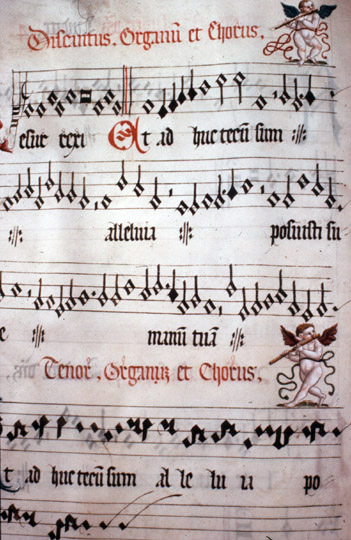 Discantus. Organū et Chorus.
esurrexi Et ad huc tecū sum :||:
alleluia :||: posuisti su
:||: manū tuā :||:
Tenor. Organiz et Chorus.
t ad huc tecū sum al le lu ia po